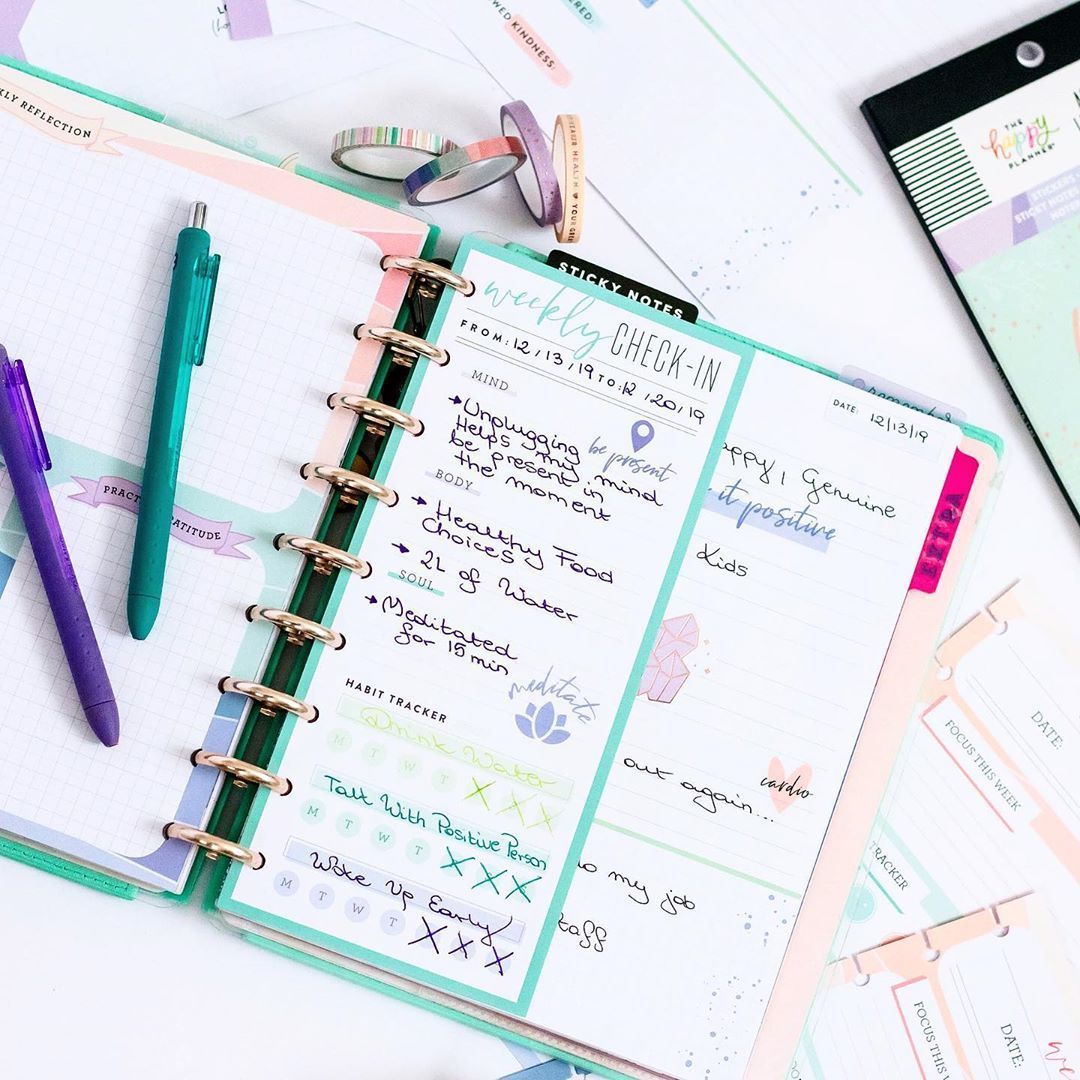 WED KINDNESS:
KLY REFLECTION
YOUR HEALTH
THE
happy
PLANNER
STICKERS
STICKY NOTES
PRACT
ATITUDE
STICKY NOTES
weekly CHECK-IN
FROM: 12 / 13 / 19 TO: 12 / 20 / 19
MIND
→ Unplugging
Helps my mind
be present in
the moment
be present
BODY
→ Healthy Food
Choices
→ 2L of Water
SOUL
→ Meditated
for 15 min
meditate
HABIT TRACKER
Drink Water
M T W T X X X
Talk With Positive Person
M T W T X X X
Woke Up Early
M T W T X X X
DATE: 12/13/19
appy, Genuine
it positive
Kids
out again...
cardio
o my job
taff
EXTRA
DATE:
FOCUS THIS WEEK
TRACKER
DATE:
FOCUS THIS W
we